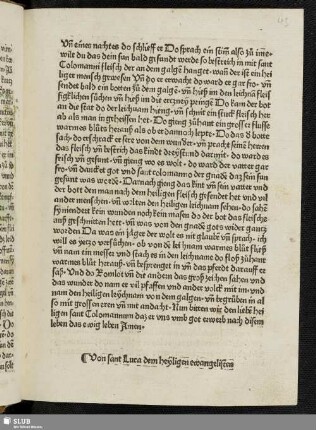 Vñ eines nachtes do schlieff er Do sprach ein stim also zů im·
wilt du das dein sun bald gesundt werde so bestreich in mit sant
Colomanni fleisch der an dem galgẽ hanget· wañ der ist ein hei
liger mensch gewesen Vñ do er erwacht do ward er gar fro· vñ
sendet bald ein botten zů dem galgẽ· vñ hieß im den leichnã fleiß
figklichen sůchen vñ hieß im die erczney pringẽ Do kam der bot
an die stat do der leichnam hieng· vñ schnit ein stuck fleisch her
ab als man in geheissen het· Do gieng zůhant ein grosser flusse
warmes blůts heraus als ob er dannoch lepte· Do das d botte
sach· do erschrack er sere von dem wunder· vñ pracht seinẽ herren
das fleisch vñ bestrich das kindt do ward es gar
frisch vñ gesunt· vñ gieng wo es wolt· Do ward der vatter gar
fro· vñ dancket got vnd sant colomanno der gnadẽ daz sein sun
gesunt was wordẽ· Darnach gieng das kint vñ sein vatter vnd
der bott den man nach dem heiligen fleisch gesendet het vnd vil
ander menschen· vñ wolten den heiligen leichnam sehen· do
fynden kein wunden noch kein masen do der bot das fleische
auß geschnitten hett· vñ was von den gnadẽ gots wider gancz
worden Da was ein jäger der wolt es nit glaubẽ vñ sprach· ich
will es yeczo versůchen· ob von dẽ leichnam warmes blůt fliuß
vñ nam ein messer vnd stach es in den leichname do floß zůhant
warms blůt herauß· vñ besprenget in vñ das pferdt darauff er
saß· Vnd do vñ die andern das groß zeichen sahen vnd
das wunder do nam er vil pfaffen vnd ander volck mit im· vnd
nam den heiligen leychnam von dem galgen· vñ begrůben in al
so mit grossen eren vñ mit andacht· Nun bitten wir den liebẽ hei
ligen sant Colomannum daz er vns vmb got erwerb nach disem
leben das ewig leben Amen·
Von sant Luca dem heyligen ewangelisten
SLUB